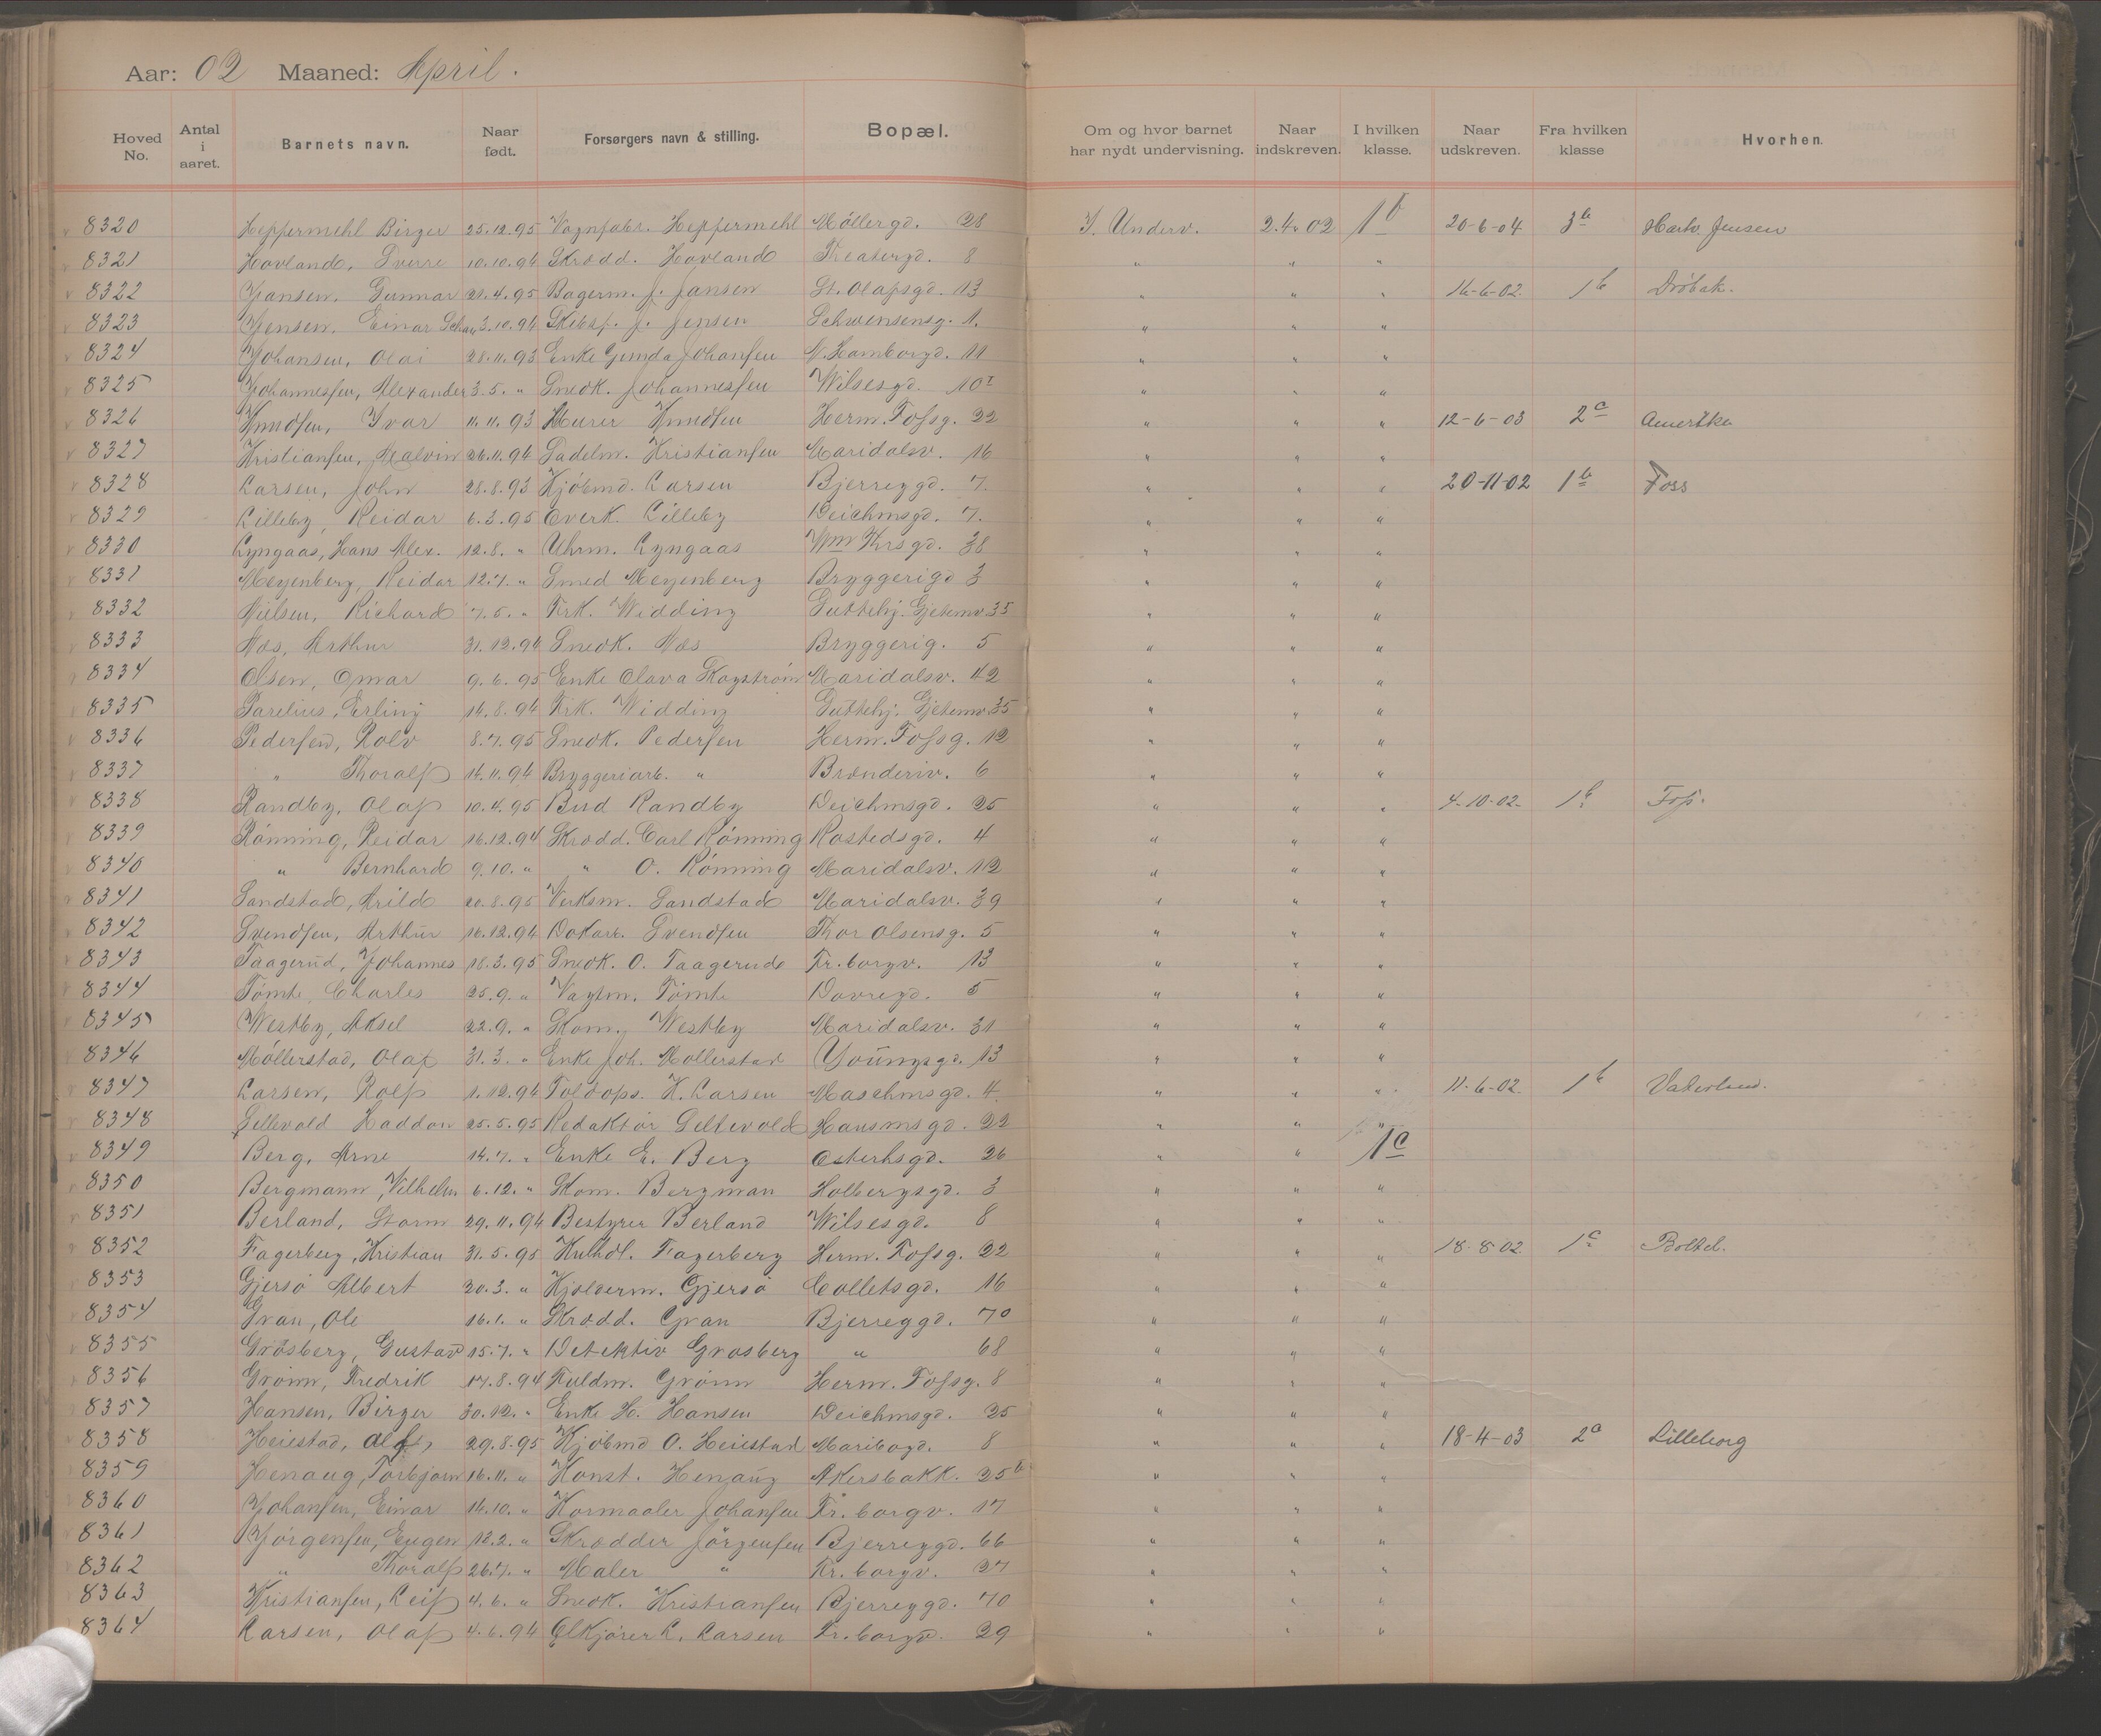 Aar: 02 Maaned: April.
Hoved No. Antal i aaret. Barnets navn. Naar født. Forsørgers navn & stilling. Bopæl. Om og hvor barnet har nydt undervisning. Naar indskreven. I hvilken klasse. Naar udskreven. Fra hvilken klasse Hvorhen.
8320 Heppermehl Birger 25.12.95 Vognfabr. Heppermehl Møllergd. 28 I. Underv. 2.4.02 1b 20-6-04 3b Hartv. Jensen
8321 Hovland, Sverre 10.10.94 Skrædd. Hovland Theatergd. 8 " " "
8322 Jansen, Gunnar 21.4.95 Bagerm. J. Jansen St. Olafsgd. 13 " " " 16-6-02. 1b Drøbak.
8323 Jensen, Einar 3.10.94 Skibsf. J. Jensen Schwensensg. 1. " " "
8324 Johansen, Olai 28.11.93 Enke Gunda Johansen N. Hamborgd. 11 " " "
8325 Johannesen, Alexander 3.5. " Snedk. Johannesen Wilsesgd. 10I " " "
8326 Knudsen, Ivar 11.11.93 Murer Knudsen Herm. Fossg. 22 " " " 12-6-03 2c Amerika
8327 Kristiansen, Malvin 26.11.94 Sadelm. Kristiansen Maridalsv. 16 " " "
8328 Larsen, John 28.8.93 Kjøbmd. Larsen Bjerreggd. 7. " " " 20-11-02 1b Foss
8329 Lilleby, Reidar 6.3.95 Overk. Lilleby Deichmsgd. 7. " " "
8330 Lyngaas, Hans Alex. 12.8. " Uhrm. Lyngaas Wm Thrsgd. 38 " " "
8331 Meyenberg, Reidar 12.7. " Smed Meyenberg Bryggerigd 3 " " "
8332 Nielsen, Richard 7.5. " Frk. Widding Guttehj. Gjetemv. 35 " " "
8333 Næs, Arthur 31.12.94 Snedk. Næs Bryggerig. 5 " " "
8334 Olsen, Omar 9.6.95 Enke Olava Skogstrøm Maridalsv. 42 " " "
8335 Parelius, Erling 14.8.94 Frk. Widding Guttehj. Gjetemv. 35 " " "
8336 Pedersen, Rolv 8.7.95 Snedk. Pedersen Herm. Fossg. 12 " " "
8337 " Thoralf 14.11.94 Bryggeriarb. " Brænderiv. 6 " " "
8338 Randby, Olaf 10.4.95 Bud Randby Deichmsgd. 25 " " " 4-10-02. 1b Foss.
8339 Rønning, Reidar 16.12.94 Skrædd. Carl Rønning Rostedsgd. 4 " " "
8340 " Bernhard 9.10. " " O. Rønning Maridalsv. 112 " " "
8341 Sandstad, Arild 20.8.95 Verksm. Sandstad Maridalsv. 39 " " "
8342 Svendsen, Arthur 16.12.94 Dokarb. Svendsen Thor Olsensg. 5 " " "
8343 Taagerud, Johannes 18.3.95 Snedk. O. Taagerud Fr. borgv. 13 " " "
8344 Tømte, Charles 25.9. " Vagtm. Tømte Dovregd. 5 " " "
8345 Westby, Aksel 22.9. " Skom. Westby Maridalsv. 31 " " "
8346 Møllerstad, Olaf 31.3. " Enke Joh. Møllerstad Youngsgd. 13 " " "
8347 Larsen, Rolf 1.12.94 Toldops. K. Larsen Maschmsgd. 4. " " " 11-6-02. 1b Vaterland.
8348 Settevold Haddon 25.5.95 Redaktør Settevold Hausmsgd. 22 " " "
8349 Berg, Arne 14.7. " Enke E. Berg Osterhsgd. 26 " " 1c
8350 Bergmann, Vilhelm 6.12. " Skom. Bergman Holbergsgd. 3 " " "
8351 Berland, Storm 29.11.94 Bestyrer Berland Wilsesgd. 8 " " "
8352 Fagerberg, Kristian 31.5.95 Kulhdl. Fagerberg Herm. Fossg. 22 " " " 18-8-02 1c Boltel.
8353 Gjersø Albert 20.3. " Hjolderm. Gjersø Colletsgd. 16 " " "
8354 Gran, Ole 16.1. " Skrædd. Gran Bjerreggd. 70 " " "
8355 Grøsberg, Gustav 15.7. " Detektiv Grøsberg " 68 " " "
8356 Grønn, Fredrik 17.8.94 Fuldm. Grønn Herm. Fossg. 8 " " "
8357 Hansen, Birger 30.12. " Enke H. Hansen Deichmsgd. 25 " " "
8358 Heiestad, Alf 29.8.95 Kjøbmd O. Heiestad Maribogd. 8 " " " 18-4-03 2a Lilleborg
8359 Henaug, Torbjørn 16.11. " Konst. Henaug Akersbakk. 25b " " "
8360 Johansen, Einar 14.10. " Kornmaaler Johansen Fr. borgv. 17 " " "
8361 Jørgensen, Eugen 12.2. " Skrædder Jørgensen Bjerreggd. 66 " " "
8362 " Thoralf 26.7. " Maler " Fr. borgv. 27 " " "
8363 Kristiansen, Leif 4.6. " Snedk. Kristiansen Bjerreggd. 70 " " "
8364 Larsen, Olaf 4.6.94 Ølkjører L. Larsen Fr. borgv. 29 " " "